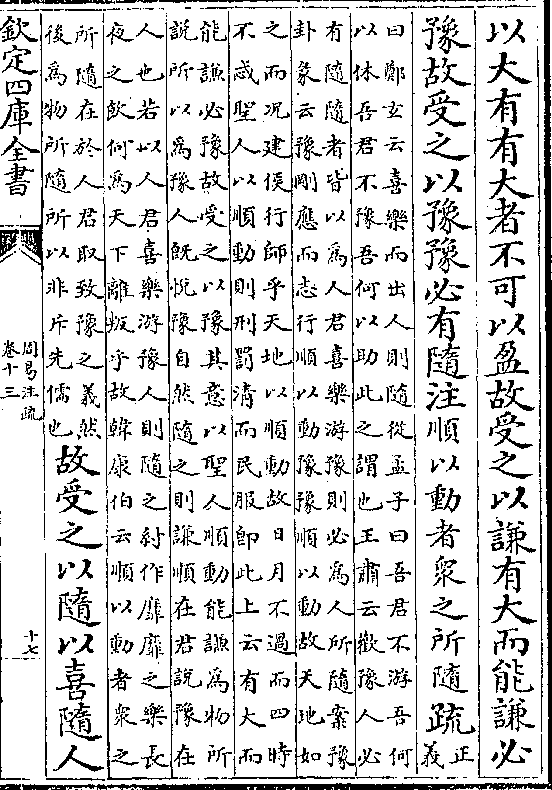 以大有有大者不可以盈故受之以謙有大而能謙必
豫故受之以豫豫必有隨注順以動者衆之所隨疏正義
曰鄭玄云喜樂而出人則隨從孟子曰吾君不游吾何
以休吾君不豫吾何以助此之謂也王肅云歡豫人必
有隨隨者皆以為人君喜樂游豫則必為人所隨案豫
卦彖云豫剛應而志行順以動豫豫順以動故天地如
之而况建侯行師乎天地以順動故日月不過而四時
不忒聖人以順動則刑罰清而民服即此上云有大而
能謙必豫故受之以豫其意以聖人順動能謙為物所
説所以為豫人既悅豫自然隨之則謙順在君説豫在
人也若以人君喜樂游豫人則隨之紂作靡靡之樂長
夜之飲何為天下離叛乎故韓康伯云順以動者衆之
所隨在於人君取致豫之義然
後為物所隨所以非斥先儒也
故受之以隨以喜隨人
欽定四庫全書
周易注疏
卷十三
十七